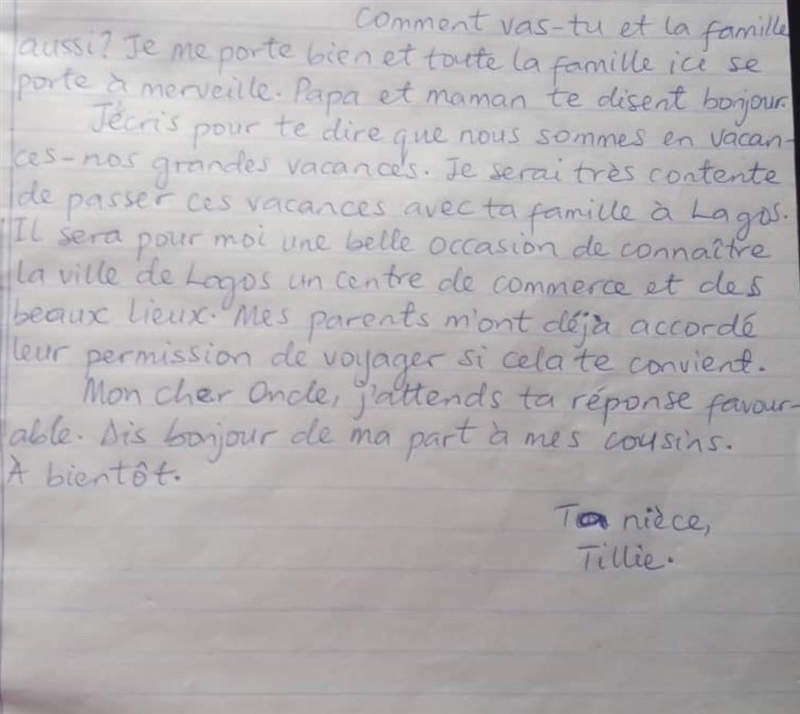 Comment vas-tu et la famille
aussi? Je me porte bien et toute la famille ice se
porte à merveille. Papa et maman te disent bonjour.
J'écris pour te dire que nous sommes en vacan-
ces-nos grandes vacances. Je serai très contente
de passer ces vacances avec ta famille à Lagos.
Il sera pour moi une belle occasion de connaître
la ville de Lagos un centre de commerce et des
beaux lieux. Mes parents m'ont déjà accordé
leur permission de voyager si cela te convient.
Mon cher Oncle, j'attends ta réponse favour-
able. Dis bonjour de ma part à mes cousins.
À bientôt.
Ta nièce,
Tillie.